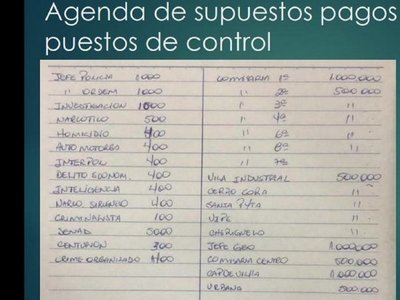 Agenda de supuestos pagos
puestos de control
JEFE POLICIA 1000
" ORDEM 1000
INVESTIGACION 1000
NARCOTICO 500
HOMICIDIO 400
AUTOMOTORES 400
INTERPOL 400
DELITO ECONOM. 400
INTELIGENCIA 400
NARCO 400
CRIMINALISTA 100
SENAD 3000
CENTURION 300
CRIME ORGANIZADO 400
COMISARIA 1ª 1.000.000
" 2ª 500.000
" 3ª "
" 4ª "
" 6ª "
" 8ª "
" 7ª
VILA INDUSTRIAL 500.000
CERRO CORA "
SANTA "
"
CHIRIGUELO "
JEFE GEO 1.000.000
COMISARIA CENTRO 500.000
CAPDEVILA 1.000.000
URBANA 500.000